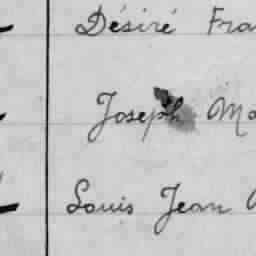 Désiré Fra
Joseph Ma
Louis Jean